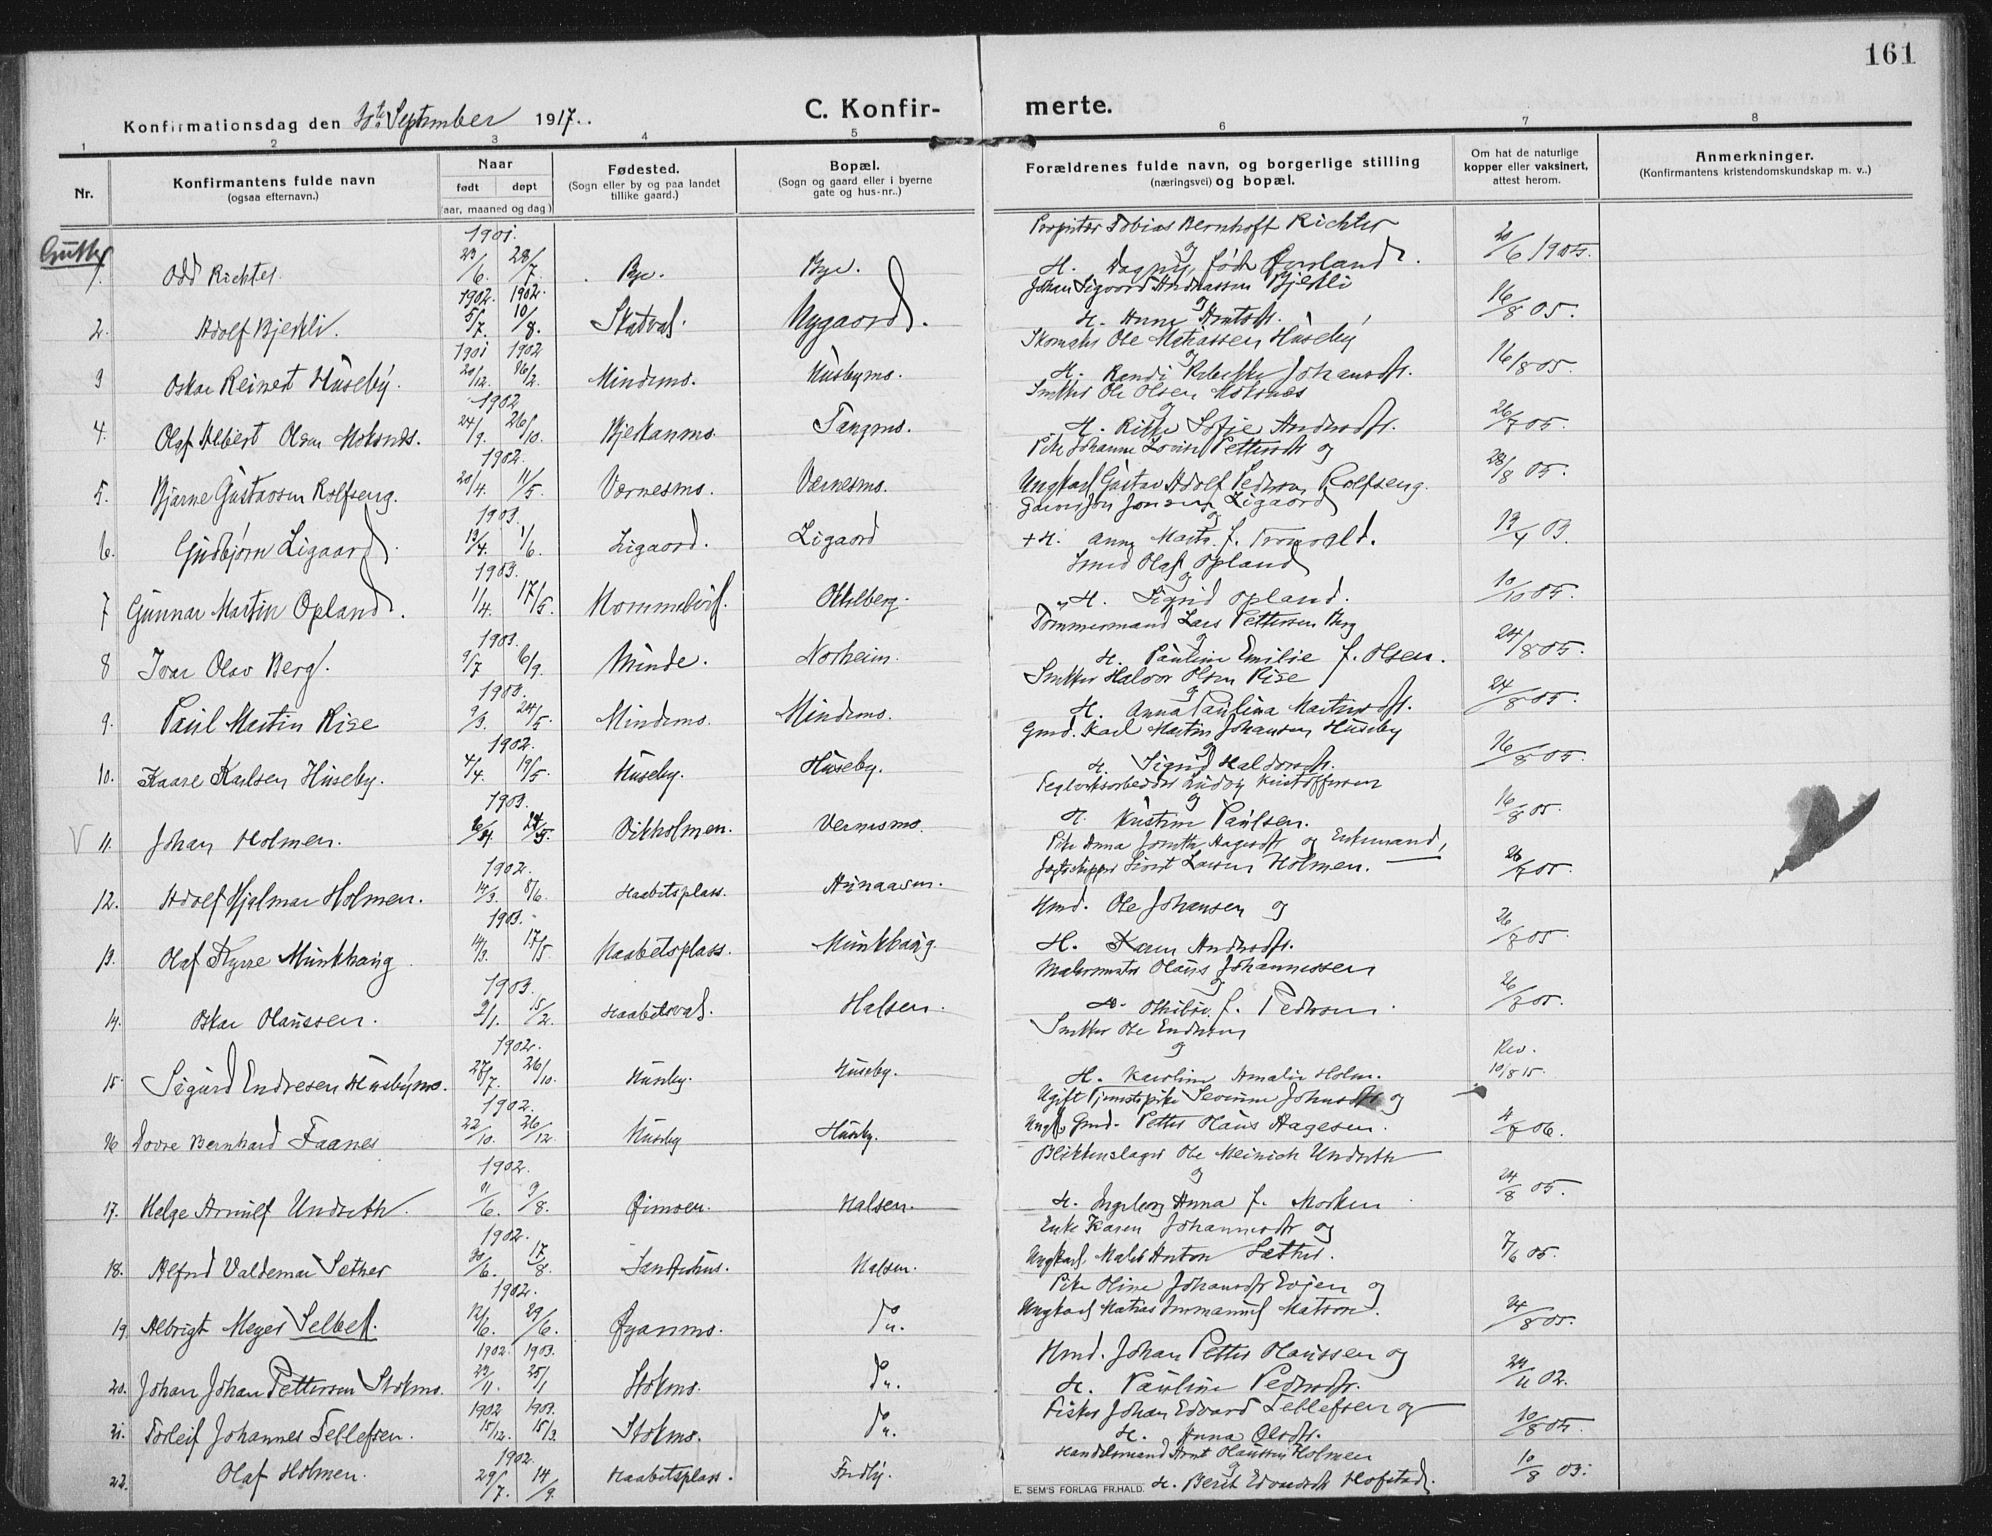 161
Konfirmationsdag den September 1917.
C. Konfirmerte.
1 2 3 4 5 6 7 8
Nr.
Konfirmantens fulde navn
(ogsaa efternavn.)
Naar
født døpt
(aar, maaned og dag)
Fødested.
(Sogn eller by og paa landet
tillike gaard.)
Bopæl.
(Sogn og gaard eller i byerne
gate og hus-nr.)
Forældrenes fulde navn, og borgerlige stilling
(næringsvei) og bopæl.
Om hat de naturlige
kopper eller vaksinert,
attest herom.
Anmerkninger.
(Konfirmantens kristendomskundskap m. v..)
Gutter
1901.
Tobias Bernhoft Richter
og
1. Odd Richter. 23/6. 28/7. Bye. Bye. H. Dagny, født 20/6 1905.
1902. 1902.
Johan Sigvord Andreassen Bjerkli
og
2. Adolf Bjerkli. 5/7. 10/8. Skatval. Nygaard. H. Anna 16/8 05.
1901 1902
Skomaker Ole Matiassen Huseby
og
3 Oskar Reinert Huseby. 20/12. 16/2. Mindemo. Husbymo. H. Randi Rebekka Johansdtr. 16/8 05.
1902
Ole Olsen Moksnes
og
4. Olaf Albert Olsen Moksnes. 24/9. 26/10. Bjerkanmo. Tangmo. H. Sofie Andersdtr. 26/7 05.
1902.
Pike Johanne Lovise Pettersdtr og
5. Bjarne Gustavsen Rolfseng. 20/4. 11/5. Værnesmo. Værnesmo. Ungkarl Gustav Adolf Pedersen Rolfseng. 28/8 05.
1903.
Jon Jonsen Ligaard
og
6. Gudbjørn Ligaard. 13/4. 1/6. Ligaard. Ligaard + H. Anna Marta f. 13/4 03.
1903.
Smed Olaf Opland
og
7 Gunnar Martin Opland. 1/4. 17/5. H. Sigrid Opland. 10/10 05.
1903.
Tømmermand Lars Pettersen Berg
og
8 Ivar Olav Berg. 9/7 6/9. Minde. Norheim. H. Pauline Emilie f. Olsen. 24/8 05.
1903.
Halvor Olsen Rise
og
9. Paul Martin Rise 9/3. 24/5. Mindemo. Mindemo. H. Anna Paulina Martinsdtr. 24/8 05.
1902.
Gmd. Karl Martin Johansen Huseby
og
10. Kaare Karlsen Huseby. 4/4. 19/5. Huseby. Huseby. H. Sigrid Haldorsdtr. 16/8 05.
1903.
Teglverksarbeider Ludvig Kristoffersen
og
V 11. Johan Holmen. Vikholmen. Vernesmo. H. Kristine Paulsen. 16/8 05.
1902.
Pike Anna Hagesdtr og Enkemand,
12. Adolf Hjalmar Holmen. 14/3. 8/6. Haabetsplass. Larsen Holmen. 26/7 05.
1903.
Hmd. Ole Johansen og
13. Olaf Kyrre Munkhaug 14/3. 17/5 Haabetsplass. Munkhaug. H. Karen Andersdtr. 26/8 05.
1903.
Malermester Olaus Johannessen
og
14. Oskar Olaussen. 2/1. 15/2. Halsen. H. f. Pedersen. 26/7 05.
1902.
Ole Endresen
og
15. Sigurd Endresen Husbymo. 27/7. 26/10. Huseby. Huseby. H. Karoline Amalie Holm. Rev. 10/8 15.
1902.
Ugift Tjenestepike Severine og
16 Dovre Bernhard Faanes 22/10. 26/12. Huseby Huseby. Gmd. Petter Olaus Hagesen. 4/7 06.
1902.
Blikkenslager Ole Meinich Undseth
og
17. Helge Arnulf Undseth. 11/6. 9/8. Øimoen. Halsen. H. Ingeborg Anna f. Morken 24/8 05.
1902.
Enke Karen Johannesdtr og
18. Alfred Valdemar Sether 30/6. 17/8. Halsen. Ungkarl Maler Anton Sæther. 7/6 05.
1902.
Pike Oline Johansdtr Evjen og
19. Albrigt Meyer Selbek. 12/6. 29/6. Øyanmo. Do. Ungkarl Matias Immanuel Matson. 24/8 05.
1902. 1903.
Hmd. Johan Petter Olaussen og
20. Johan Johan Pettersen Stokmo. 23/11. 25/1 Stokmo. Do. H. Pauline Pedersdtr. 24/11 02.
1902 1903.
Fisker Johan Edvard Tellefsen og
21. Torleif Johannes Tellefsen. 15/12. 15/3. Stokmo. Do. H. Anna Olsdtr. 10/8 05.
1902.
Handelsmand Arnt Olaussen Holmen
og
22. Olaf Holmen. 29/7. 14/9. Haabetsplass. Fredly. H. Berit Edvardsdtr Hofstad. 10/8 03.
E. SEM'S FORLAG FR.HALD.